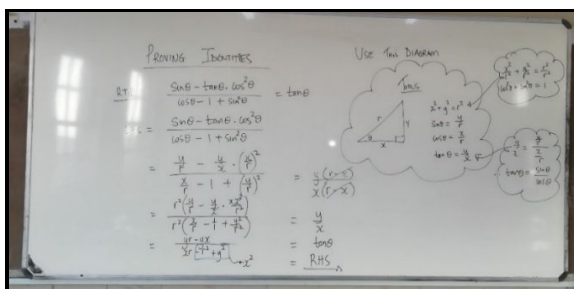 PROVING IDENTITIES
R.T.P. (sinθ - tanθ.cos²θ)/(cosθ - 1 + sin²θ) = tanθ
= (sinθ - tanθ.cos²θ)/(cosθ - 1 + sin²θ)
= (y/r - y/x . (x/r)²)/(x/r - 1 + (y/r)²)
= r²(y/r - y/x . x²/r²)/r²(x/r - 1 + y²/r²)
= (yr - yx)/(xr - r² + y²) → x²
= y(r - x)/x(r - x)
= y/x
= tanθ
= RHS
USE THIS DIAGRAM
THIS
r
y
x
θ
x² + y² = r²
sinθ = y/r
cosθ = x/r
tanθ = y/x
x²/r² + y²/r² = r²/r²
cos²θ + sin²θ = 1
y/x = (y/r)/(x/r)
tanθ = sinθ/cosθ